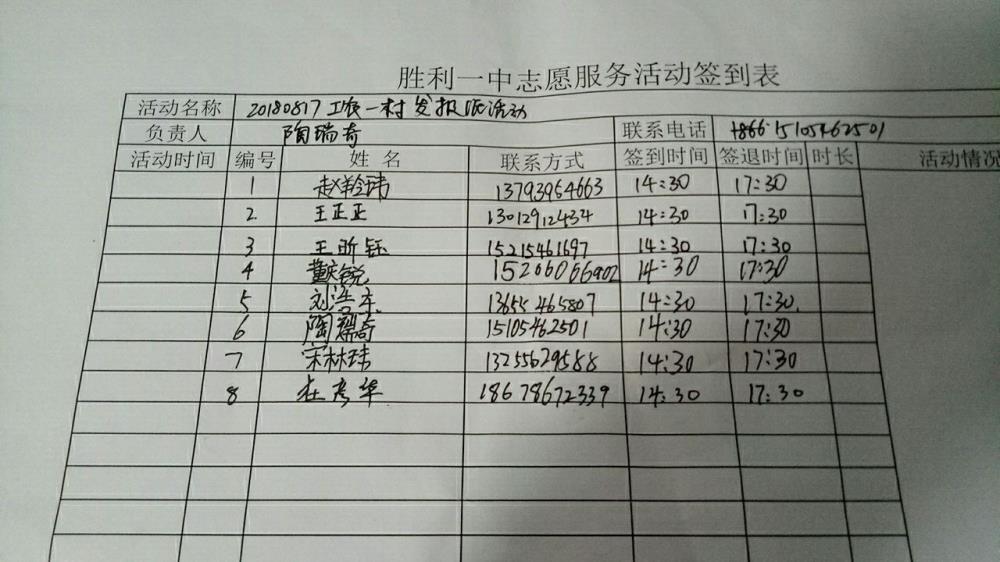 胜利一中志愿服务活动签到表
活动名称 20180817 工农一村发报纸活动
负责人 陶瑞奇 联系电话 15105462501
活动时间 编号 姓名 联系方式 签到时间 签退时间 时长 活动情况
1 赵羚玮 13793954663 14:30 17:30
2 王正正 13012912434 14:30 17:30
3 王昕钰 15215461697 14:30 17:30
4 董锐 15206066902 14:30 17:30
5 刘浩 13655465807 14:30 17:30
6 陶瑞奇 15105462501 14:30 17:30
7 宋林玮 13255629588 14:30 17:30
8 杜彦华 18678672339 14:30 17:30